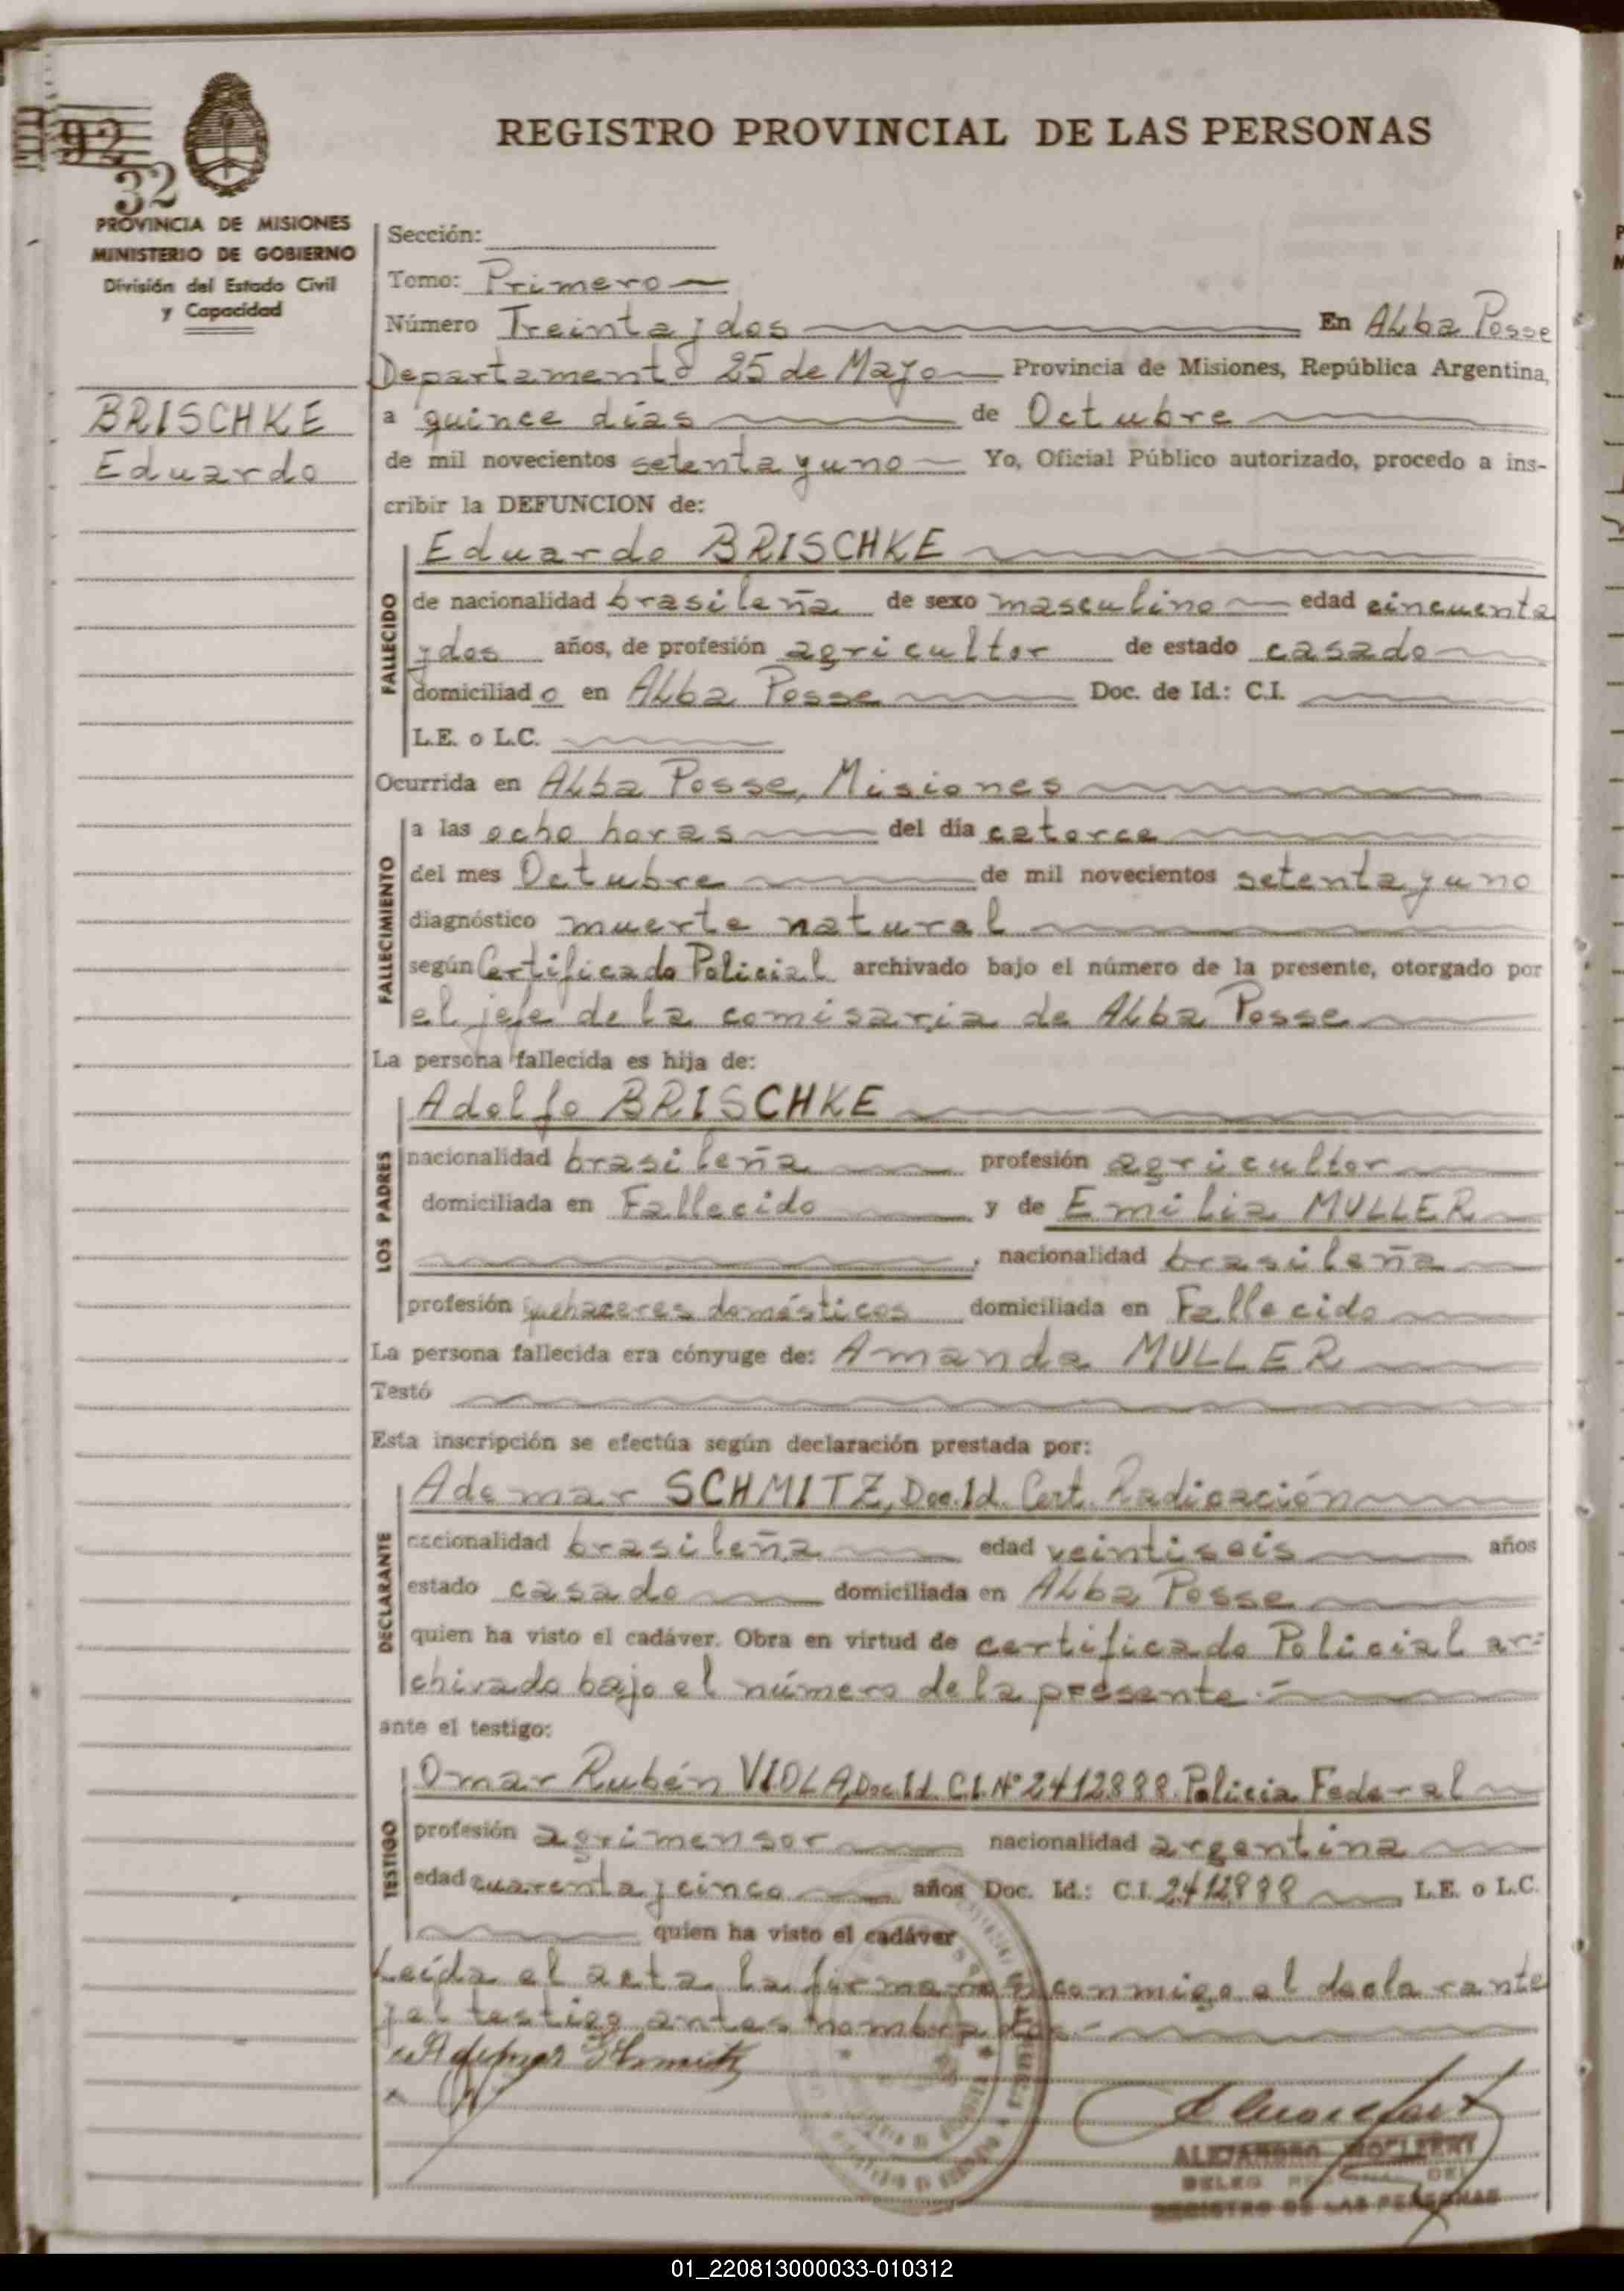 REGISTRO PROVINCIAL DE LAS PERSONAS
92
32
PROVINCIA DE MISIONES
MINISTERIO DE GOBIERNO
División del Estado Civil
y Capacidad
BRISCHKE
Eduardo
Sección:
Tomo: Primero
Número Treinta y dos En Alba Posse
Departamento 25 de Mayo Provincia de Misiones, República Argentina,
a quince días de Octubre
de mil novecientos setenta y uno Yo, Oficial Público autorizado, procedo a ins-
cribir la DEFUNCION de:
FALLECIDO
Eduardo BRISCHKE
de nacionalidad brasileña de sexo masculino edad cincuenta
y dos años, de profesión agricultor de estado casado
domiciliado en Alba Posse Doc. de Id.: C.I.
L.E. o L.C.
Ocurrida en Alba Posse, Misiones
FALLECIMIENTO
a las ocho horas del día catorce
del mes Octubre de mil novecientos setenta y uno
diagnóstico muerte natural
según Certificado Policial archivado bajo el número de la presente, otorgado por
el jefe de la comisaria de Alba Posse
La persona fallecida es hija de:
LOS PADRES
Adolfo BRISCHKE
nacionalidad brasileña profesión agricultor
domiciliada en Fallecido y de Emilia MULLER
, nacionalidad brasileña
profesión quehaceres domésticos domiciliada en Fallecido
La persona fallecida era cónyuge de: Amanda MULLER
Testó
Esta inscripción se efectúa según declaración prestada por:
DECLARANTE
Ademar SCHMITZ, Doc. Id. Cert. Radicación
nacionalidad brasileña edad veintiseis años
estado casado domiciliada en Alba Posse
quien ha visto el cadáver. Obra en virtud de certificado Policial ar=
chivado bajo el número de la presente.-
ante el testigo:
TESTIGO
Omar Rubén VIOLA, Doc. Id. C.I. Nº 2412888. Policia Federal
profesión agrimensor nacionalidad argentina
edad cuarenta y cinco años Doc. Id.: C.I. 2412888 L.E. o L.C.
quien ha visto el cadáver
Leída el acta la firman conmigo el declarante
y el testigo antes nombrados.-
Ademar Schmitz
ALEJANDRO
REGISTRO DE LAS PERSONAS
01_220813000033-010312